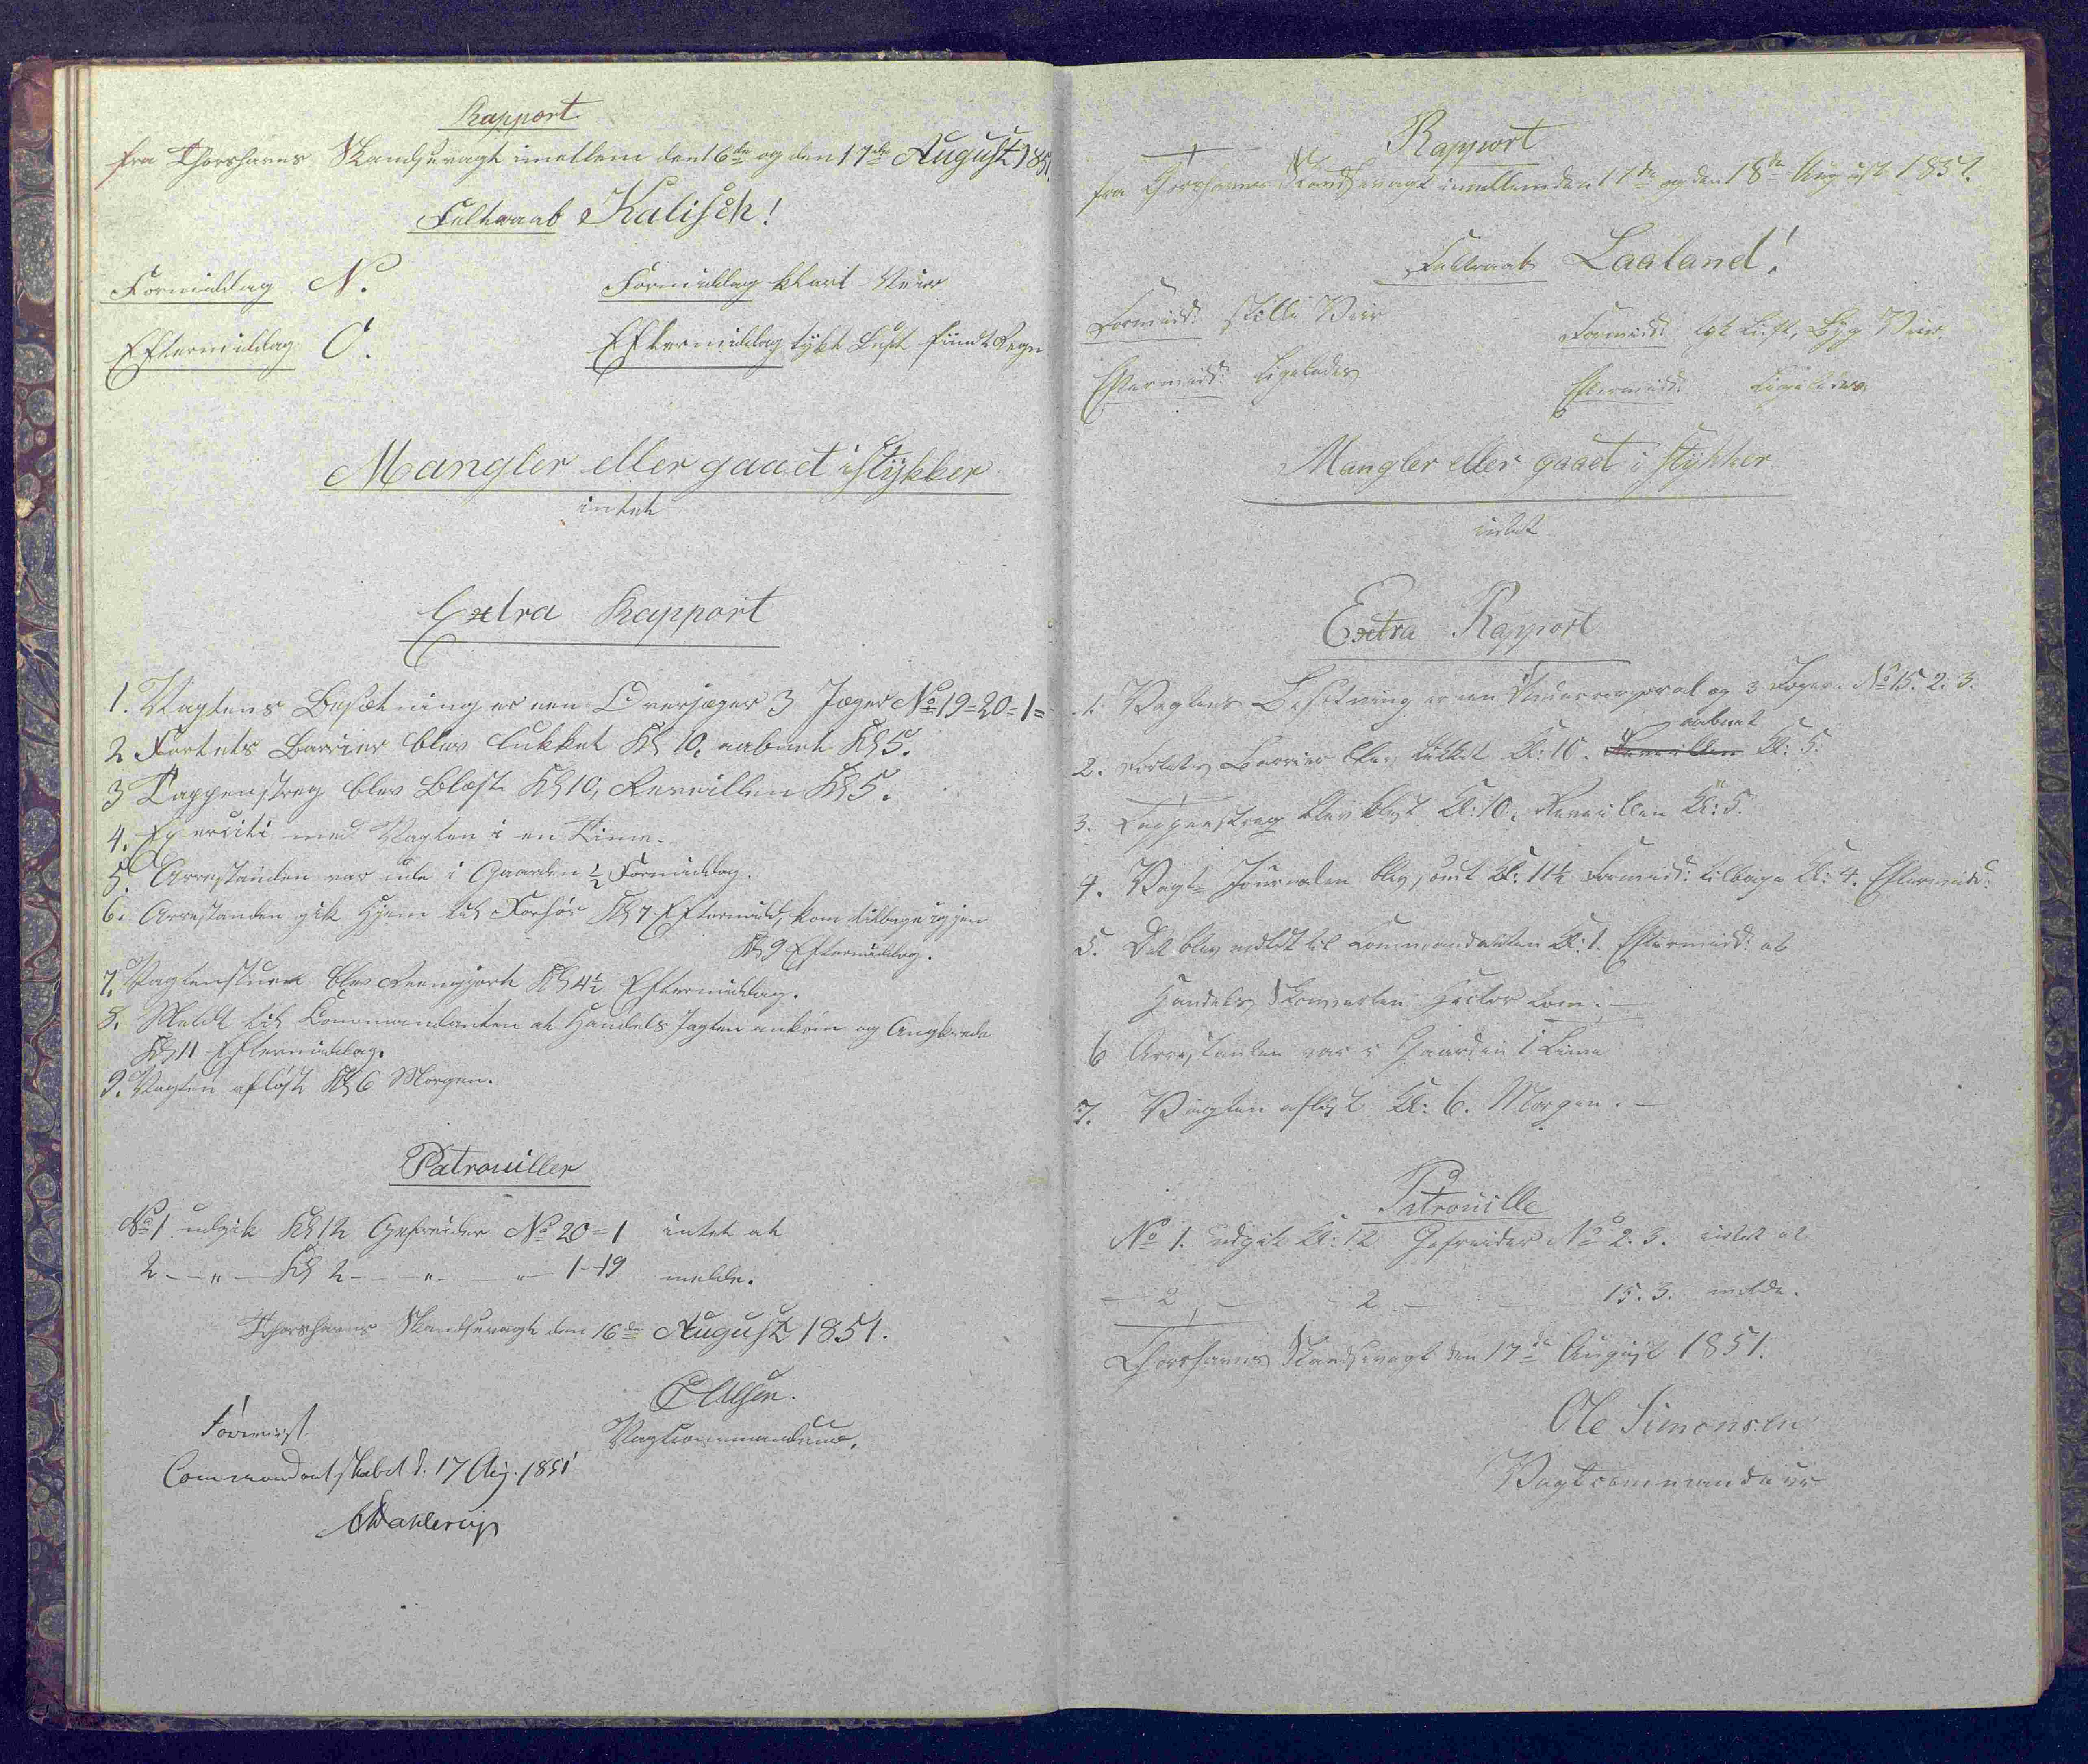 Rapport
fra Thorshavns Skandsevagt imellem den 16de og den 17de August 1851
Feltraab Kalisch!
Formiddag N.
Formiddag klart Veir
Eftermiddag O.
Eftermiddag tykt Luft fiint Regn
Mangler eller gaaet istykker
intet
Extra Rapport
1. Vagtens Besætning er een Overjæger 3 Jæger No 19=20=1=
2 Fortets Barrier blev lukket Kl 10, aabnet Kl 5.
3 Tappenstreg blev Blæst Kl 10, Reveillen Kl 5.
4. Exerciti med Vagten i en Time.
5. Arrestanden var ude i Gaarden ½ Formiddag.
6. Arrestanden gik Hjem til Forhør Kl 7 Eftermidd, kom tilbage iggjen
Kl 9 Eftermiddag.
7. Vagtenstuen blev Reengjort Kl 4½ Eftermiddag.
8. Meldt til Commandanten at Handels Jagten ankom og Angkrede
Kl 11 Eftermiddag.
9. Vagten afløst Kl 6 Morgen.
Patrouiller
No 1 udgik Kl 12 Gefreider No 20=1 intet at
2 — " — Kl 2 — " — " — 1-19 melde.
Thorshavns Skandsevagt den 16de August 1851.
Olsen.
Vagtcommandeur.
Forevist
Commandantskabet d: 17 Aug. 1851
Dahlerup
Rapport
fra Thorshavns Skandsevagt imellem den 17de og den 18de August 1851.
Feltraab Laaland!
Formidd: stille Veir
Formidd: tyk Luft, Byg Veir.
Eftermidd: Ligeledes
Eftermidd: Ligeledes
Mangler eller gaaet i stykker
intet
Extra Rapport
1. Vagtens Besætning er een Undercorporal og 3 Jæger. No 15. 2. 3.
aabnet
2. Fortets Barrier blev lukket Kl: 10. Reveillen Kl: 5.
3. Tappenstreg blev blæst Kl: 10. Reveillen Kl: 5.
4. Vagt Journalen blev sendt Kl: 11½ Formidd: tilbage Kl: 4. Eftermidd:
5. Det blev meldt til Commandanten Kl: 1. Eftermidd: at
Handels Skonnerten Hector kom. —
6 Arrestanten var i Gaarden 1 Time
7. Vagten afløst Kl: 6. Morgen. —
Patrouille
No 1. udgik Kl: 12 Gefreider No 2. 3. intet at
— 2 — — 2 — — 15. 3. melde.
Thorshavns Skandsevagt den 17de August 1851.
Ole Simonsen
Vagtcommandeur